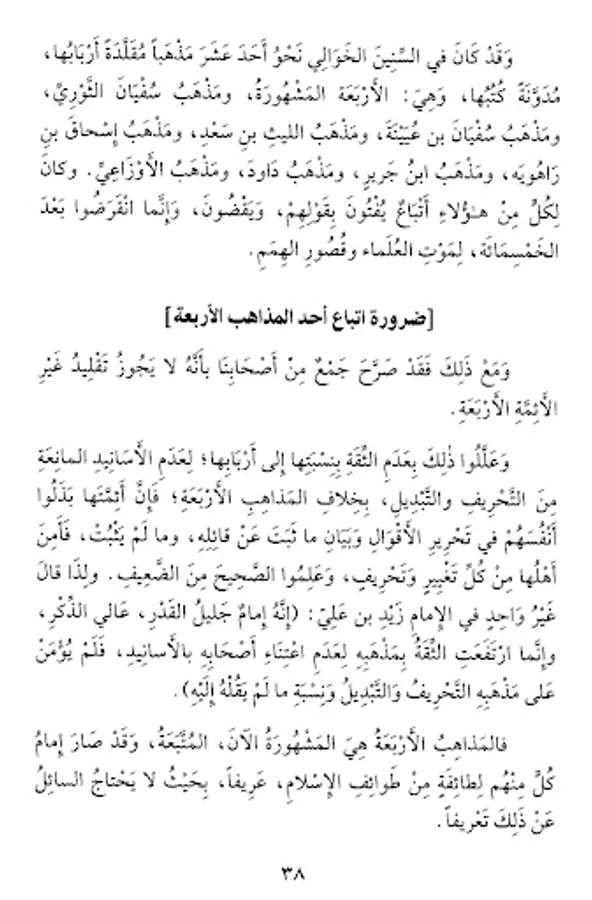 وَقَدْ كَانَ في السِّنِينَ الخَوَالِي نَحْوُ أَحَدَ عَشَرَ مَذْهَباً مُقَلَّدَةً أَرْبَابُها،
مُدَوَّنَةً كُتُبُها، وَهِيَ: الأَرْبَعَة المَشْهُورَةُ، ومَذْهَبُ سُفْيَان الثَّوْرِيِّ،
ومَذْهَبُ سُفْيَان بن عُيَيْنَة، ومَذْهَبُ الليثِ بنِ سَعْدٍ، ومَذْهَبُ إسْحاقَ بنِ
رَاهُويَه، ومَذْهَبُ ابنُ جَريرٍ، ومَذْهَبُ دَاودَ، ومَذْهَبُ الأَوْزَاعِيِّ. وكانَ
لِكُلٍّ مِنْ هؤلاءِ أَتْبَاعٌ يُفْتُونَ بِقَوْلِهِمْ، وَيَقْضُونَ، وَإِنَّما انْقَرَضُوا بَعْدَ
الخَمْسِمِائَة، لِمَوْتِ العُلَماء وقُصُورِ الهِمَمِ.
[ضرورة اتباع أحد المذاهب الأربعة]
وَمَعْ ذَلِكَ فَقَدْ صَرَّحَ جَمْعٌ مِنْ أَصْحَابِنَا بأَنَّهُ لا يَجُوزُ تَقْلِيدُ غَيْرِ
الأَئِمَّةِ الأَرْبَعَةِ.
وَعَلَّلُوا ذٰلِكَ بِعَدَمِ الثِّقَةِ بِنِسْبَتِها إلى أَرْبَابِها؛ لِعَدَمِ الأَسَانِيدِ المانِعَةِ
مِنَ التَّحْرِيفِ والتَّبْدِيلِ، بِخِلافِ المَذاهِبِ الأَرْبَعَةِ؛ فَإِنَّ أَئِمَّتَها بَذَلُوا
أَنْفُسَهُمْ في تَحْرِيرِ الأَقْوَالِ وَبَيَانِ ما ثَبَتَ عَنْ قائِلِهِ، وما لَمْ يَثْبُتْ، فَأَمِنَ
أَهْلُها مِنْ كُلِّ تَغْيِيرٍ وَتَحْرِيفٍ، وَعَلِمُوا الصَّحِيحَ مِنَ الضَّعِيفِ. ولِذَا قالَ
غَيْرُ وَاحِدٍ في الإمامِ زَيْدِ بن عَلِيّ: (إنَّهُ إمامٌ جَليلُ القَدْرِ، عَالي الذِّكْرِ،
وإنَّما ارْتَفَعَتِ الثِّقَةُ بِمَذْهَبِهِ لِعَدَمِ اعْتِنَاءِ أَصْحَابِهِ بالأَسانِيدِ، فَلَمْ يُؤْمَنْ
عَلى مَذْهَبِهِ التَّحْرِيفُ وَالتَّبْدِيلُ وَنِسْبَةِ ما لَمْ يَقُلْهُ إِلَيْهِ).
فالمَذاهِبُ الأَرْبَعَةُ هِيَ المَشْهُورَةُ الآنَ، المُتَّبَعَةُ، وَقَدْ صَارَ إمامُ
كُلٍّ مِنْهُم لِطائِفَةٍ مِنْ طَوائِفِ الإِسْلامِ، عَرِيفاً، بِحَيْثُ لا يَحْتاجُ السائِلُ
عَنْ ذَلِكَ تَعْرِيفاً.
٣٨